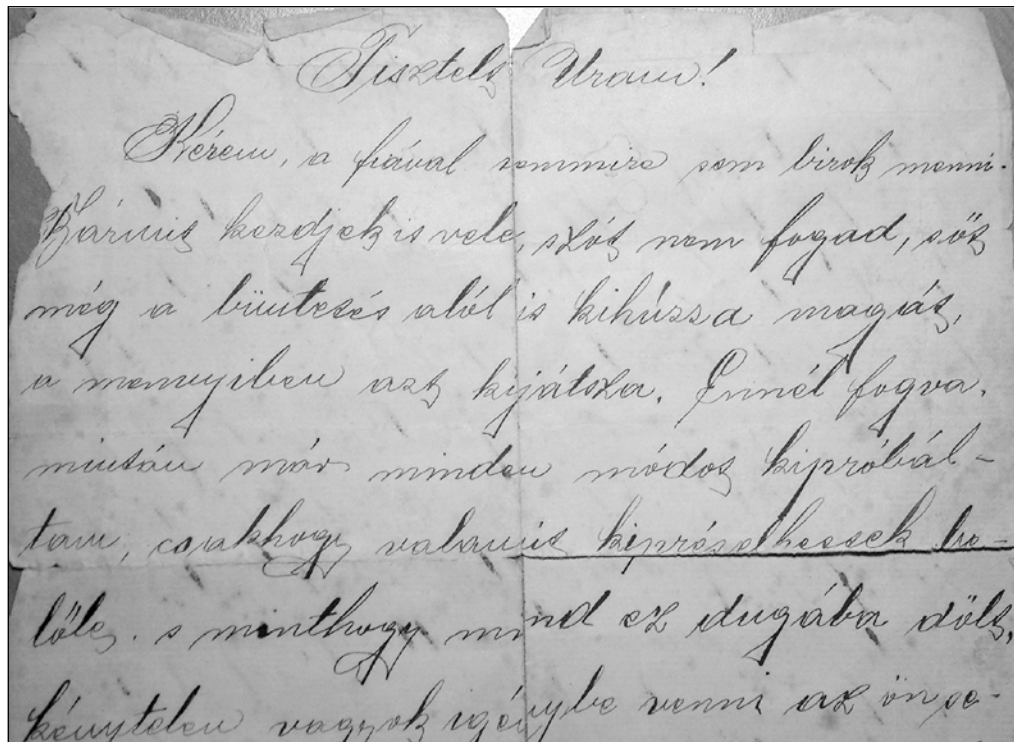 Tisztelt Uram!
Kérem, a fiával semmire sem birok menni.
Bármit kezdjek is vele, szót nem fogad, sőt
még a büntetés alól is kihúzza magát,
a mennyiben azt kijátsza. Ennél fogva,
miután már minden módot kipróbál-
tam, csakhogy valamit kipréselhessek be-
lőle, s minthogy mind ez dugába dőlt,
kénytelen vagyok igénybe venni az ön se-